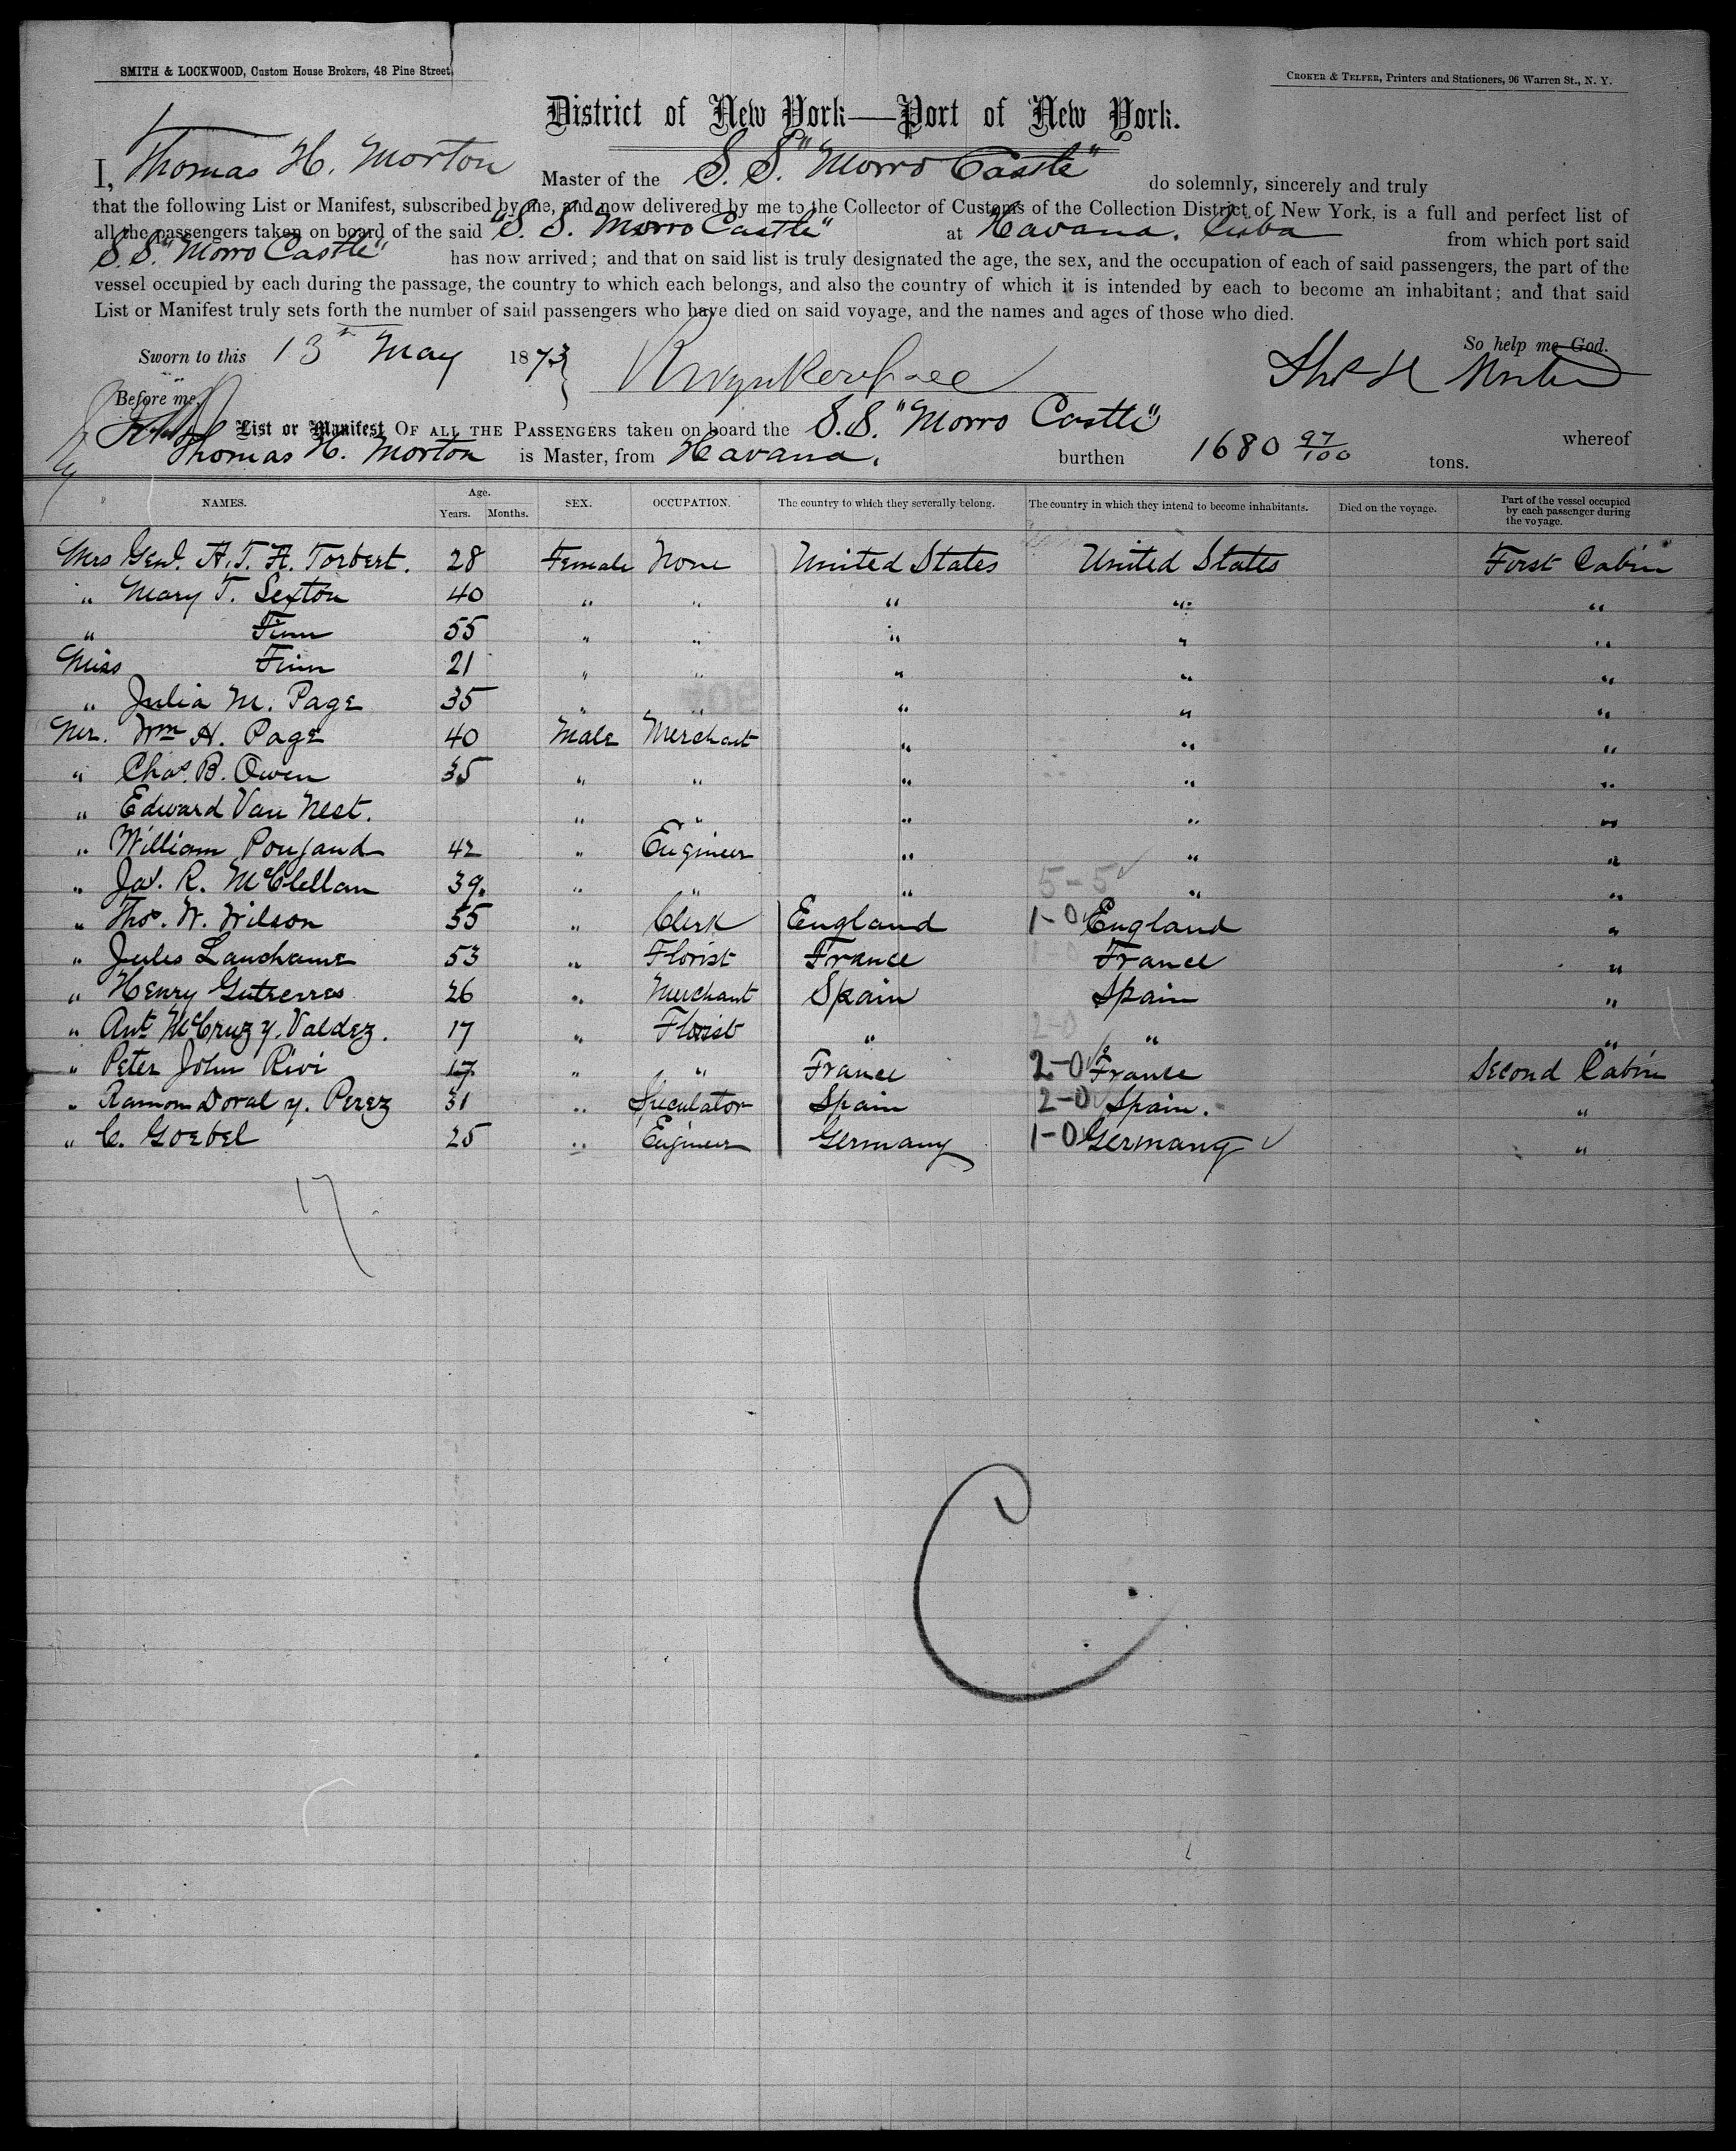 SMITH & LOCKWOOD, Custom House Brokers, 48 Pine Street.
CROKER & TELFER, Printers and Stationers, 96 Warren St., N. Y.
District of New York—Port of New York.
I, Thomas H. Morton Master of the S. S. "Morro Castle" do solemnly, sincerely and truly
that the following List or Manifest, subscribed by me, and now delivered by me to the Collector of Customs of the Collection District of New York, is a full and perfect list of
all the passengers taken on board of the said "S. S. Morro Castle" at Havana. Cuba from which port said
S.S. "Morro Castle" has now arrived; and that on said list is truly designated the age, the sex, and the occupation of each of said passengers, the part of the
vessel occupied by each during the passage, the country to which each belongs, and also the country of which it is intended by each to become an inhabitant; and that said
List or Manifest truly sets forth the number of said passengers who have died on said voyage, and the names and ages of those who died.
So help me God.
Sworn to this 13th May 1873 Thos H Morton
Before me,
List or Manifest OF ALL THE PASSENGERS taken on board the S.S. "Morro Castle" whereof
Thomas H. Morton is Master, from Havana. burthen 1680 97/100 tons.
NAMES. Age. Years. Months. SEX. OCCUPATION. The country to which they severally belong. The country in which they intend to become inhabitants. Died on the voyage. Part of the vessel occupied by each passenger during the voyage.
Mrs Genl. A. T. A. Torbert. 28 Female None United States United States First Cabin
" Mary T. Sexton 40 " " " " "
" Finn 55 " " " " "
Miss Finn 21 " " " " "
" Julia M. Page 35 " " " " "
Mr. Wm H. Page 40 Male Merchant " " "
" Chas. B. Owen 35 " " " " "
" Edward Van Nest. " " " " "
" William Poujaud 42 " Engineer " " "
" Jas. R. McClellan 39. " " " 5-5 " "
" Thos. W. Wilson 55 " Clerk England 1-0 England "
" Jules Lanchame 53 " Florist France 1-0 France "
" Henry Gutierres 26 " Merchant Spain Spain "
" Ant. McCruz y. Valdez. 17 " Florist " 2-0 " "
" Peter John Rivi 17 " " France 2-0 France Second Cabin
" Ramon Doral y. Perez 31 " Speculator Spain 2-0 Spain. "
" C. Goebel 25 " Engineer Germany 1-0 Germany "
17
C